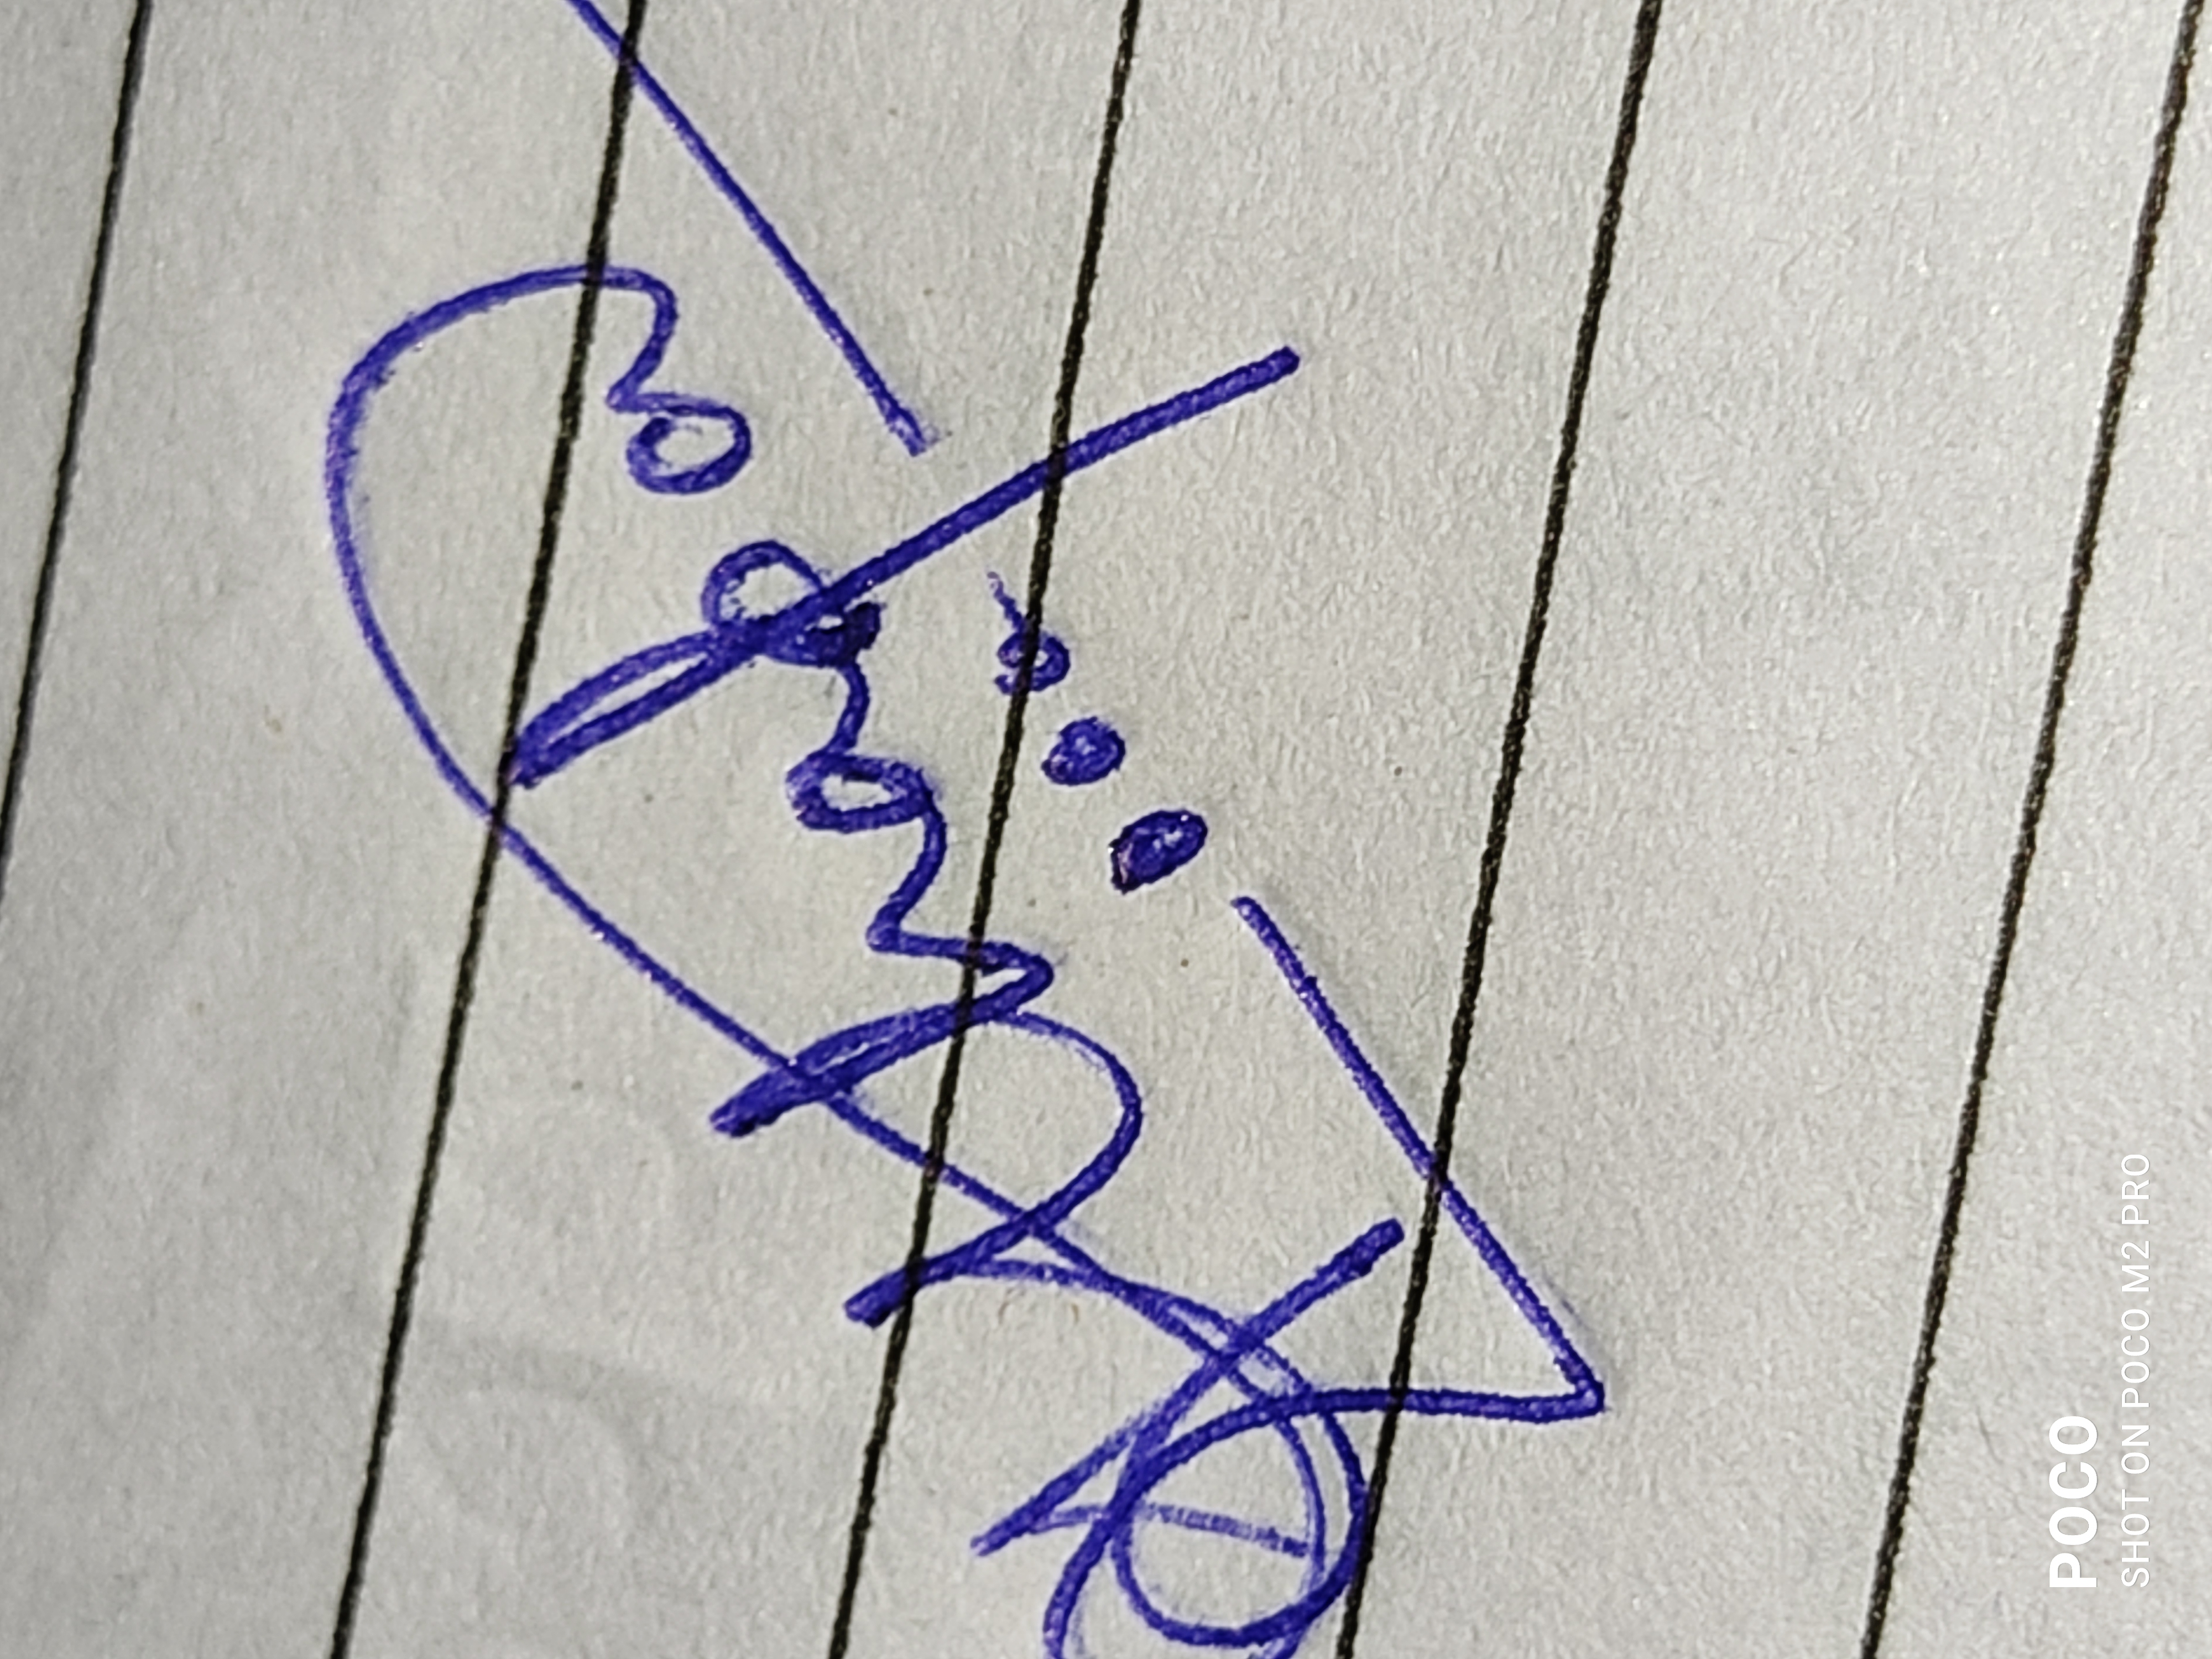 Thapa
POCO
SHOT ON POCO M2 PRO